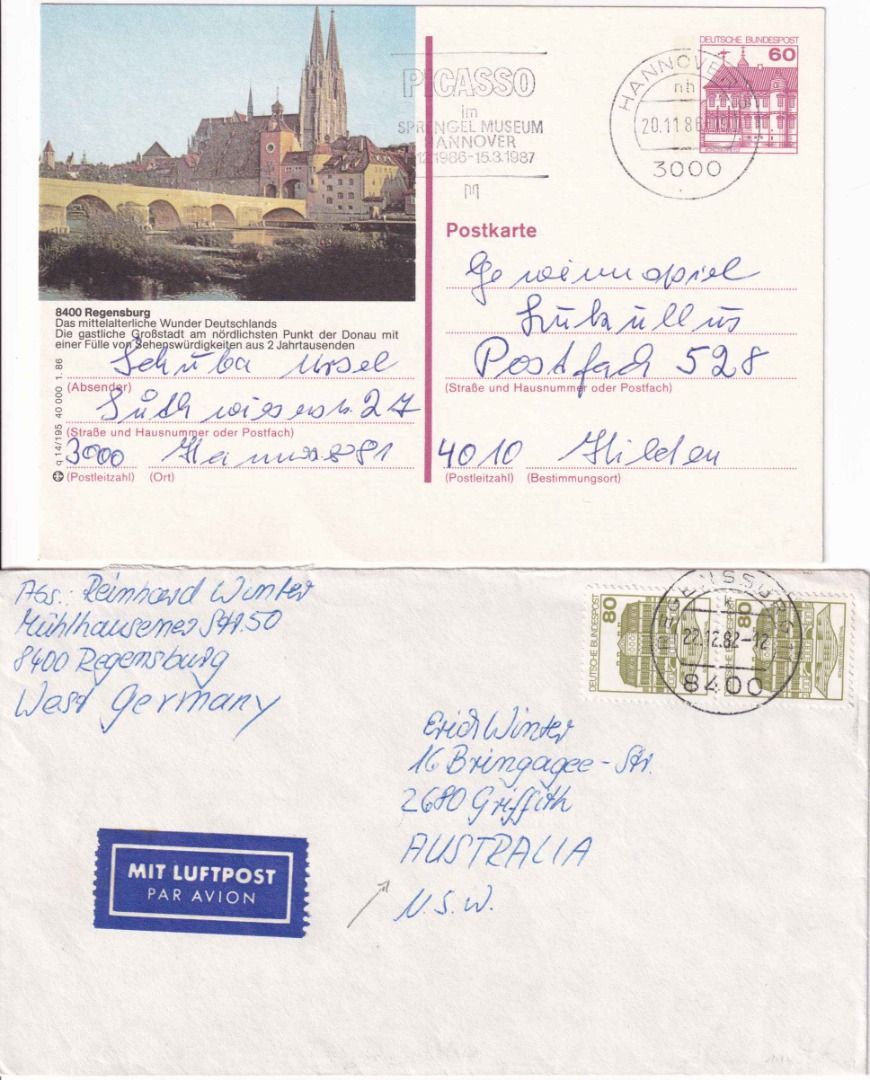 DEUTSCHE BUNDESPOST
60
PICASSO
im
SPRENGEL MUSEUM
HANNOVER
1986-15.3.1987
HANNOVER
nh
20.11.86
3000
Postkarte
8400 Regensburg
Das mittelalterliche Wunder Deutschlands
Die gastliche Großstadt am nördlichsten Punkt der Donau mit
einer Fülle von Sehenswürdigkeiten aus 2 Jahrtausenden
Schuba Ursel
(Absender)
27
(Straße und Hausnummer oder Postfach)
3000 Hannover 81
(Postleitzahl) (Ort)
q 14/195 40 000 1.86
Gewinnspiel
Lukullus
Postfach 528
(Straße und Hausnummer oder Postfach)
4010 Hilden
(Postleitzahl) (Bestimmungsort)
Abs.: Reinhard Winter
Mühlhausener Str. 50
8400 Regensburg
West Germany
80
DEUTSCHE BUNDESPOST
80
REGENSBURG
27.12.82-12
8400
Erich Winter
16 Bringagee-Str.
2680 Griffith
AUSTRALIA
N.S.W.
MIT LUFTPOST
PAR AVION